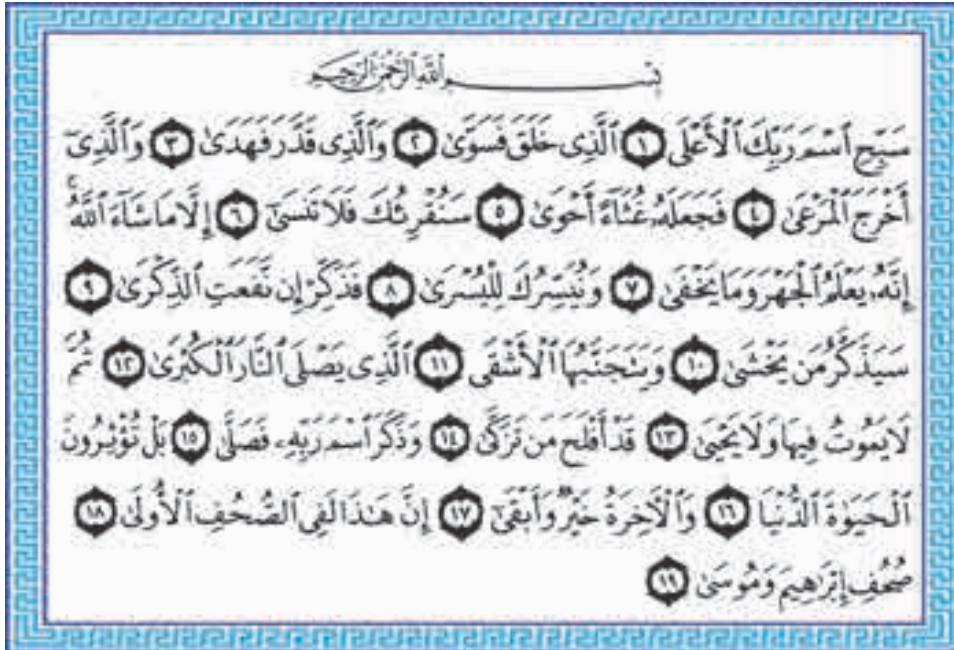 بِسْمِ اللَّهِ الرَّحْمَٰنِ الرَّحِيمِ
سَبِّحِ اسْمَ رَبِّكَ الْأَعْلَى ١ الَّذِي خَلَقَ فَسَوَّىٰ ٢ وَالَّذِي قَدَّرَ فَهَدَىٰ ٣ وَالَّذِي
أَخْرَجَ الْمَرْعَىٰ ٤ فَجَعَلَهُ غُثَاءً أَحْوَىٰ ٥ سَنُقْرِئُكَ فَلَا تَنسَىٰ ٦ إِلَّا مَا شَاءَ اللَّهُ ۚ
إِنَّهُ يَعْلَمُ الْجَهْرَ وَمَا يَخْفَىٰ ٧ وَنُيَسِّرُكَ لِلْيُسْرَىٰ ٨ فَذَكِّرْ إِن نَّفَعَتِ الذِّكْرَىٰ ٩
سَيَذَّكَّرُ مَن يَخْشَىٰ ١٠ وَيَتَجَنَّبُهَا الْأَشْقَى ١١ الَّذِي يَصْلَى النَّارَ الْكُبْرَىٰ ١٢ ثُمَّ
لَا يَمُوتُ فِيهَا وَلَا يَحْيَىٰ ١٣ قَدْ أَفْلَحَ مَن تَزَكَّىٰ ١٤ وَذَكَرَ اسْمَ رَبِّهِ فَصَلَّىٰ ١٥ بَلْ تُؤْثِرُونَ
الْحَيَوٰةَ الدُّنْيَا ١٦ وَالْآخِرَةُ خَيْرٌ وَأَبْقَىٰ ١٧ إِنَّ هَٰذَا لَفِي الصُّحُفِ الْأُولَىٰ ١٨
صُحُفِ إِبْرَاهِيمَ وَمُوسَىٰ ١٩